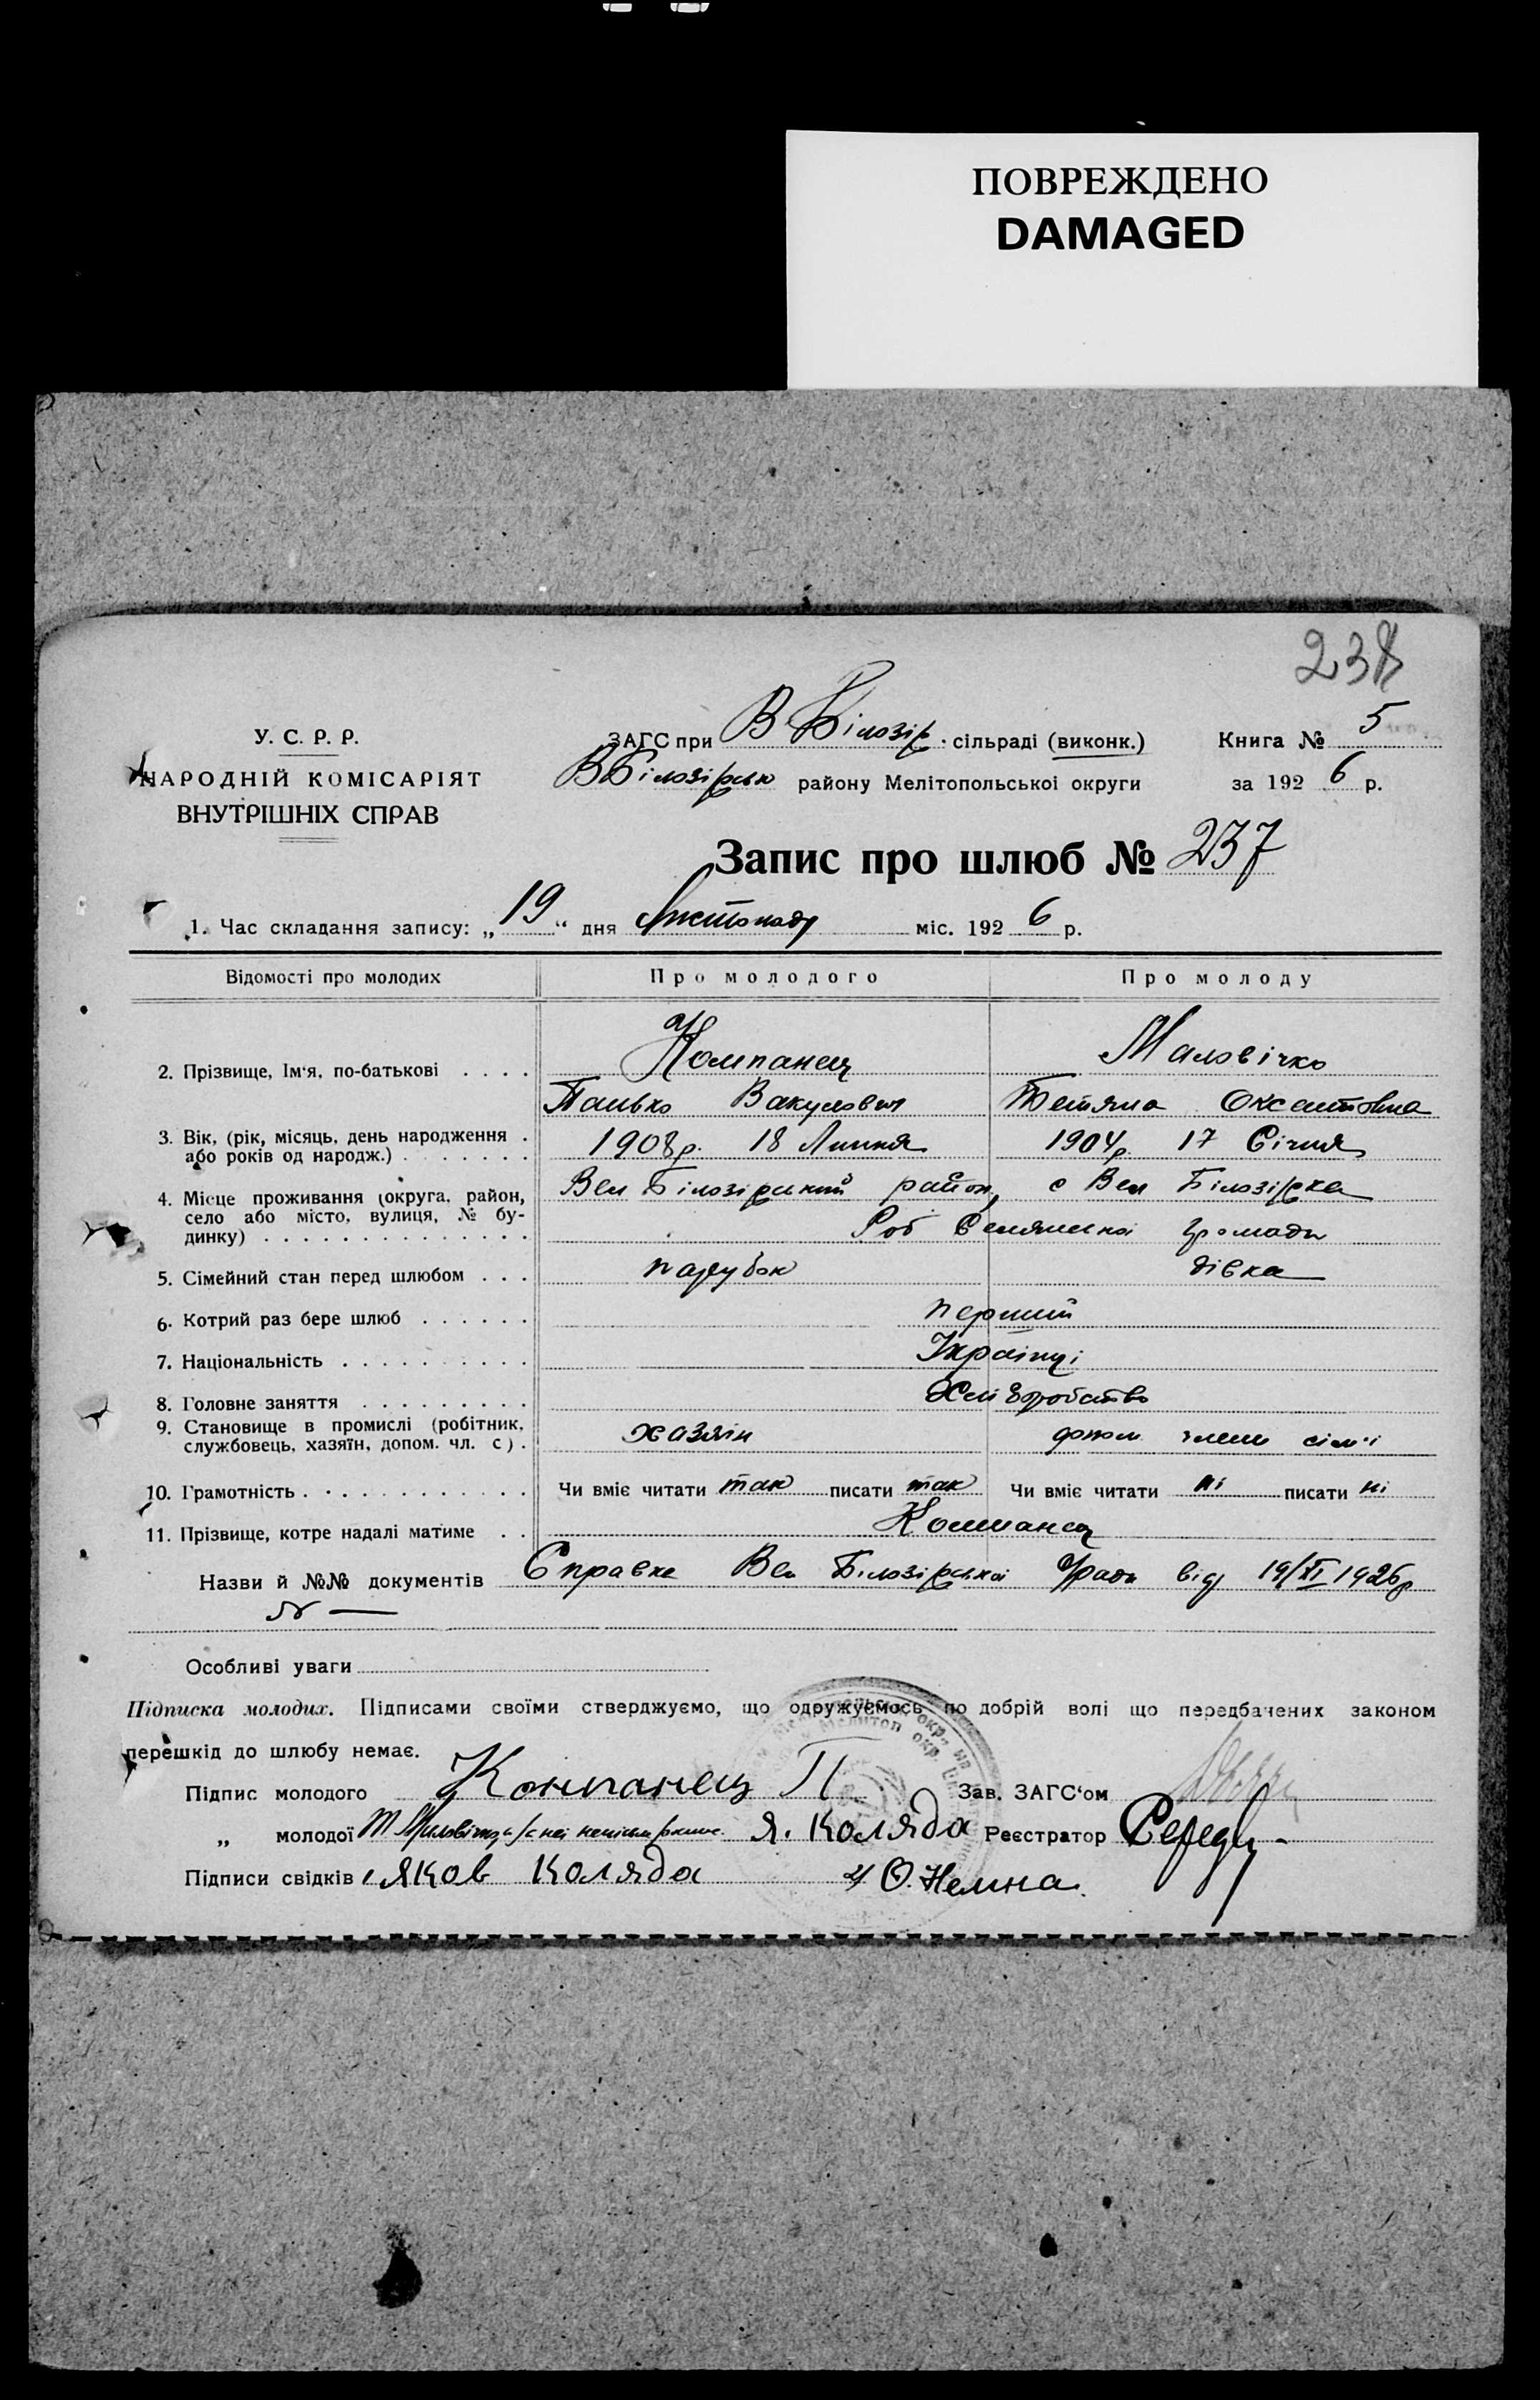 ПОВРЕЖДЕНО
DAMAGED
238
У. С. Р. Р.
НАРОДНІЙ КОМІСАРІЯТ
ВНУТРІШНІХ СПРАВ
ЗАГС при В Білозір. сільраді (виконк.)
Книга № 5
ВБілозірськ району Мелітопольської округи
за 192 6 р.
Запис про шлюб № 237
1. Час складання запису: „ 19 “ дня Листопаду міс. 192 6 р.
Відомості про молодих
Про молодого
Про молоду
2. Прізвище, Ім'я, по-батькові . . . .
Компанец
Маловічко
Панько Вакулович
Тетяна Оксентовна
3. Вік, (рік, місяць, день народження .
або років од народж.) . . . . . . .
1908р. 18 Липня
1904р. 17 Січня
4. Місце проживання (округа, район,
село або місто, вулиця, № бу-
динку) . . . . . . . . . . . . . .
Вел Білозірський район, с Вел Білозірка
Роб Селянської громади
5. Сімейний стан перед шлюбом . . .
парубок
дівка
6. Котрий раз бере шлюб . . . . . .
перший
7. Національність . . . . . . . . . .
Українці
8. Головне заняття . . . . . . . . .
Хліборобство
9. Становище в промислі (робітник,
службовець, хазяїн, допом. чл. с) .
хазяін
допом. член сім'ї
10. Грамотність . . . . . . . . . . . .
Чи вміє читати так писати так
Чи вміє читати ні писати ні
11. Прізвище, котре надалі матиме . .
Компанец
Назви й №№ документів Справка Вел Білозірської Ради від 19/XI 1926р
№ —
Особливі уваги
Підписка молодих. Підписами своїми стверджуємо, що одружуємось по добрій волі що передбачених законом
перешкід до шлюбу немає.
Підпис молодого Компанец П
Зав. ЗАГС‘ом
„ молодої Т Маловічко Я. Коляда
Реєстратор Середа
Підписи свідків Яков Коляда